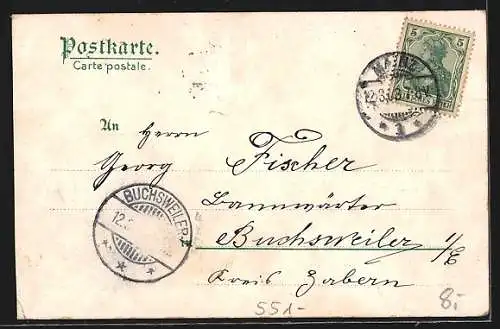 Postkarte.
Carte postale.
5 5
MAINZ
12.3.03.
1
An Herrn
Georg Fischer
Bannwärter
Buchsweiler i/E
Kreis Zabern
BUCHSWEILER
12.
551-
8.-